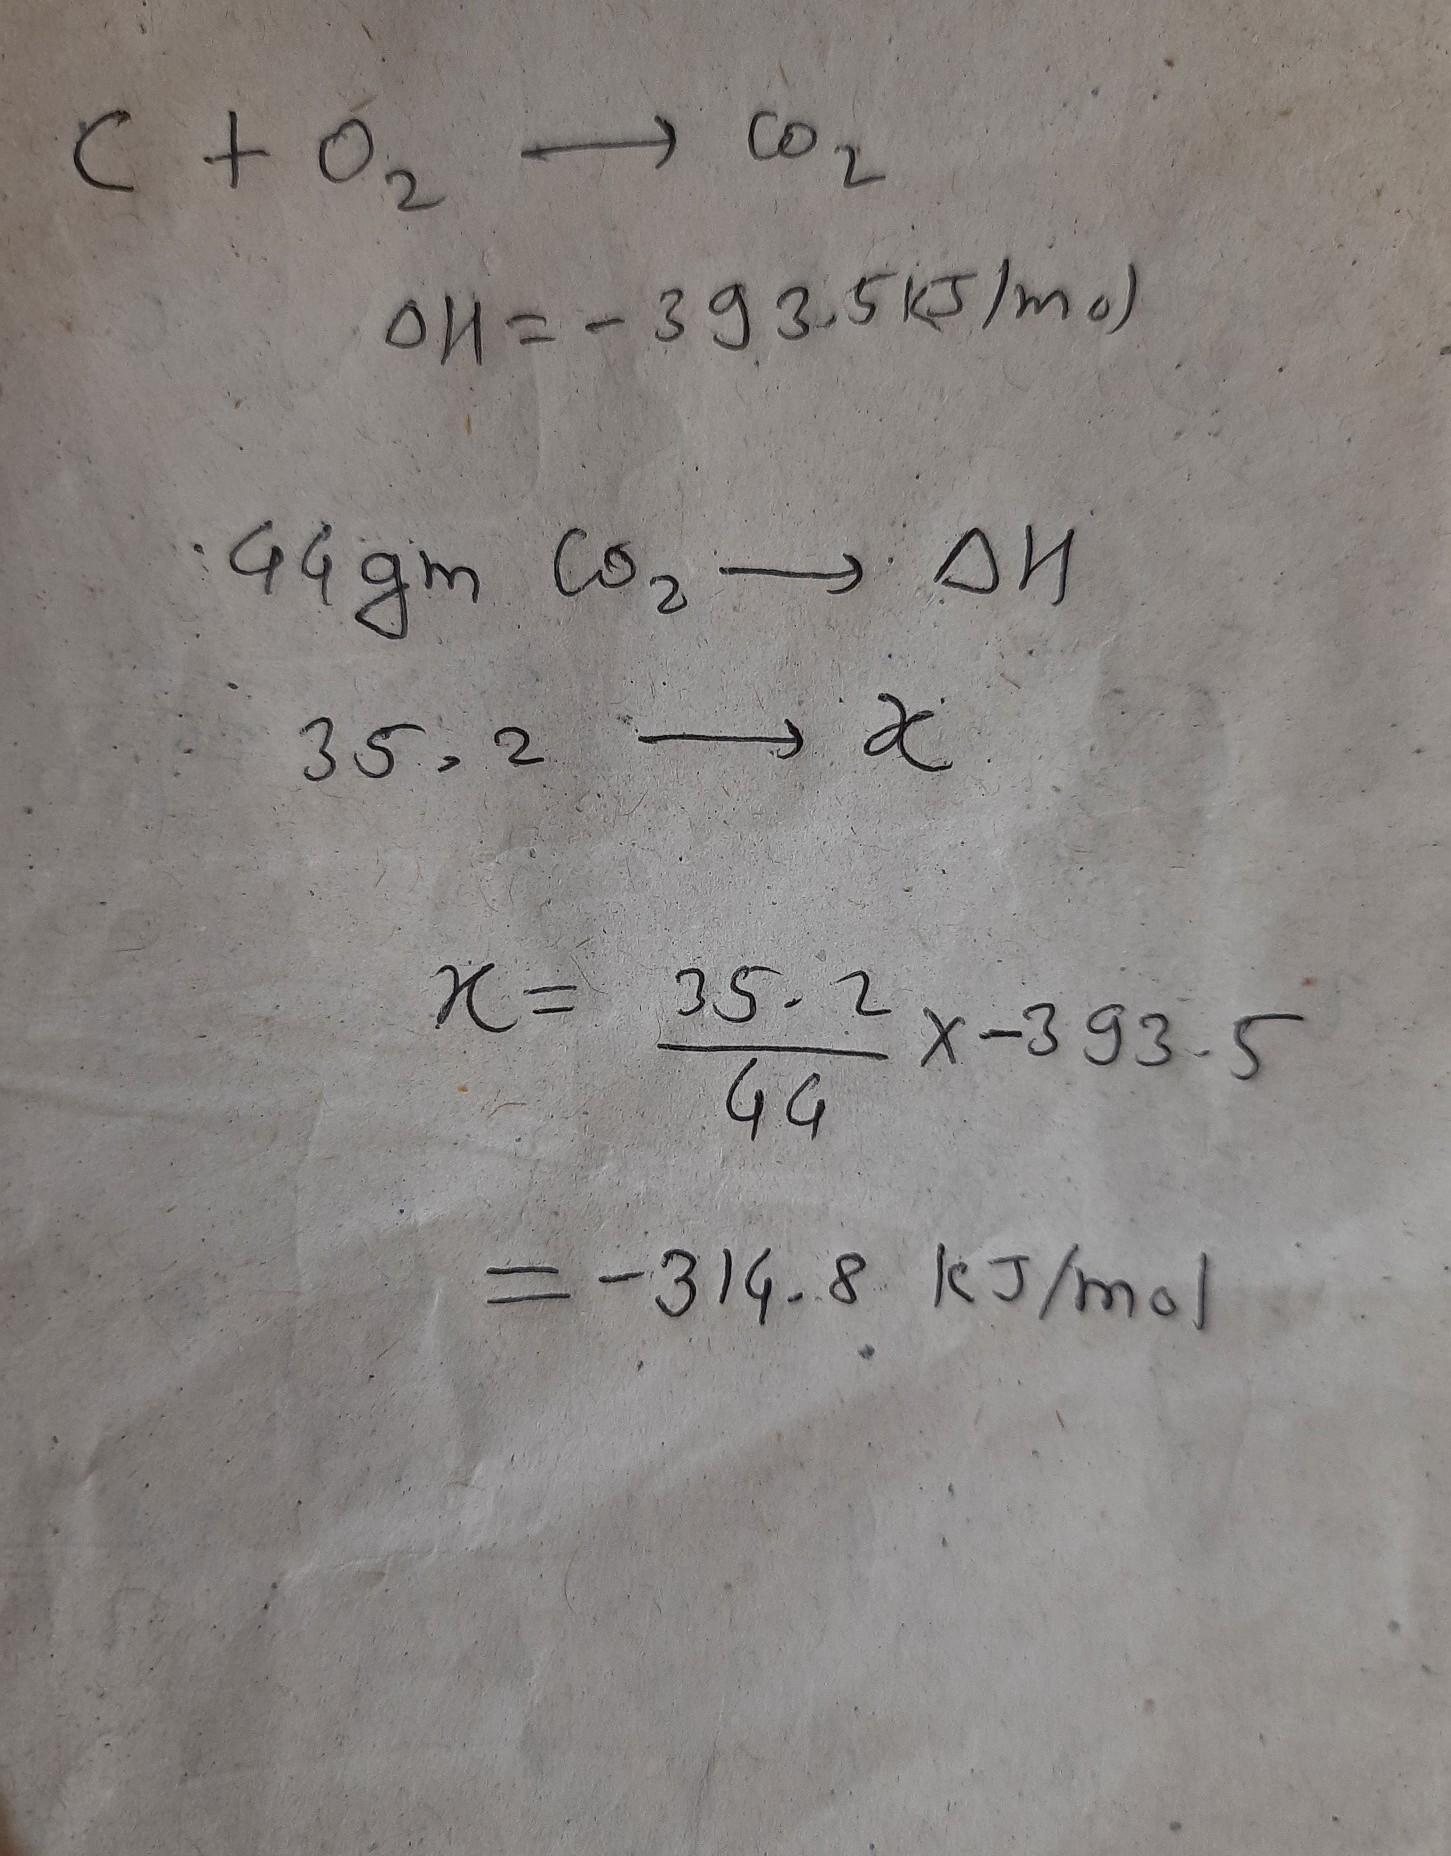 C + O₂ → CO₂
ΔH = -393.5 kJ/mol
44gm CO₂ → ΔH
35.2 → x
x = 35.2/44 x -393.5
= -314.8 kJ/mol